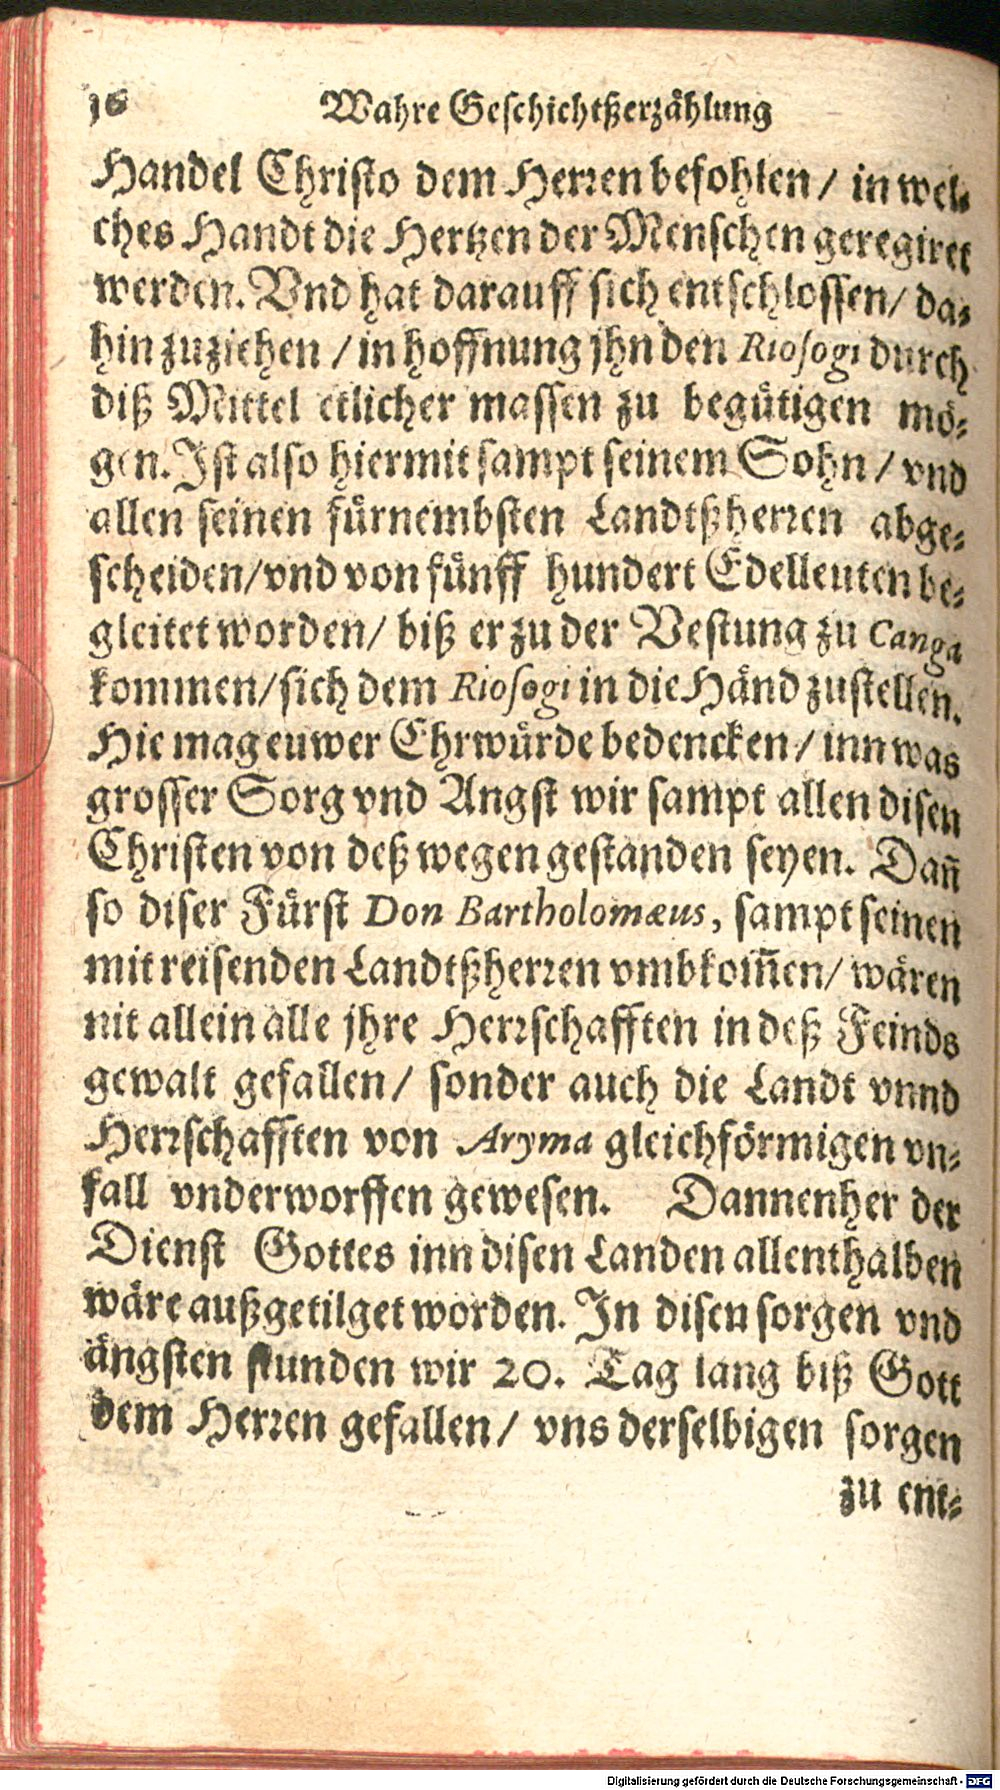 16 Wahre Geschichtßerzählung
Handel Christo dem Herren befohlen / in wel-
ches Handt die Hertzen der Menschen geregiret
werden. Vnd hat darauff sich entschlossen / da-
hin zuziehen / in hoffnung jhn den Riosogi durch
diß Mittel etlicher massen zu begütigen mö-
gen. Ist also hiermit sampt seinem Sohn / vnd
allen seinen fürnembsten Landtßherren abge-
scheiden / vnd von fünff hundert Edelleuten be-
gleitet worden / biß er zu der Vestung zu Canga
kommen / sich dem Riosogi in die Händ zustellen.
Hie mag euwer Ehrwürde bedencken / inn was
grosser Sorg vnd Angst wir sampt allen disen
Christen von deß wegen gestanden seyen. Dañ
so diser Fürst Don Bartholomæus, sampt seinen
mit reisenden Landtßherren vmbkom̃en / wären
nit allein alle jhre Herrschafften in deß Feinds
gewalt gefallen / sonder auch die Landt vnnd
Herrschafften von Aryma gleichförmigen vn-
fall vnderworffen gewesen. Dannenher der
Dienst Gottes inn disen Landen allenthalben
wäre außgetilget worden. In disen sorgen vnd
ängsten stunden wir 20. Tag lang biß Gott
dem Herren gefallen / vns derselbigen sorgen
zu ent-
Digitalisierung gefördert durch die Deutsche Forschungsgemeinschaft - DFG